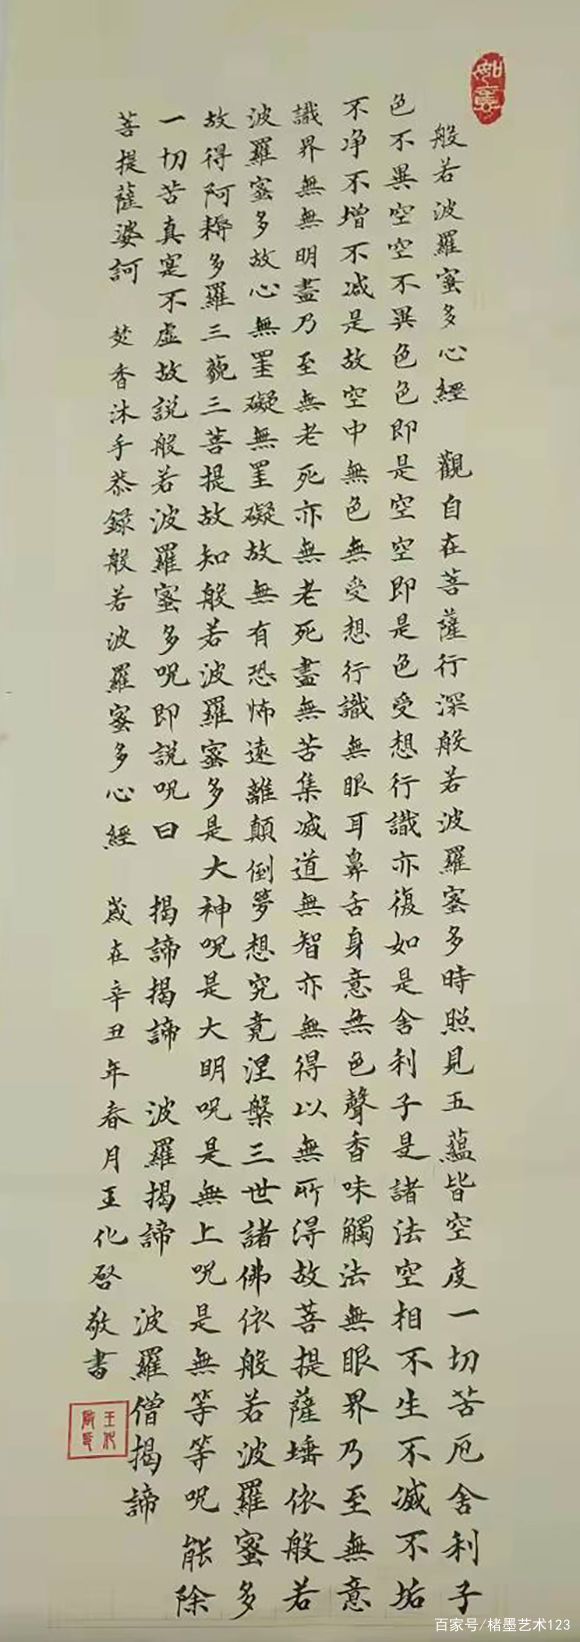 如意
般若波羅蜜多心經 觀自在菩薩行深般若波羅蜜多時照見五蘊皆空度一切苦厄舍利子
色不異空空不異色色即是空空即是色受想行識亦復如是舍利子是諸法空相不生不滅不垢
不净不增不减是故空中無色無受想行識無眼耳鼻舌身意無色聲香味觸法無眼界乃至無意
識界無無明盡乃至無老死亦無老死盡無苦集滅道無智亦無得以無所得故菩提薩埵依般若
波羅蜜多故心無罣礙無罣礙故無有恐怖遠離顛倒夢想究竟涅槃三世諸佛依般若波羅蜜多
故得阿耨多羅三藐三菩提故知般若波羅蜜多是大神咒是大明咒是無上咒是無等等咒能除
一切苦真寔不虚故説般若波羅蜜多咒即説咒曰 揭諦揭諦 波羅揭諦 波羅僧揭諦
菩提薩婆訶 焚香沐手恭録般若波羅蜜多心經 歲在辛丑年春月王化啓敬書
百家号/楮墨艺术123